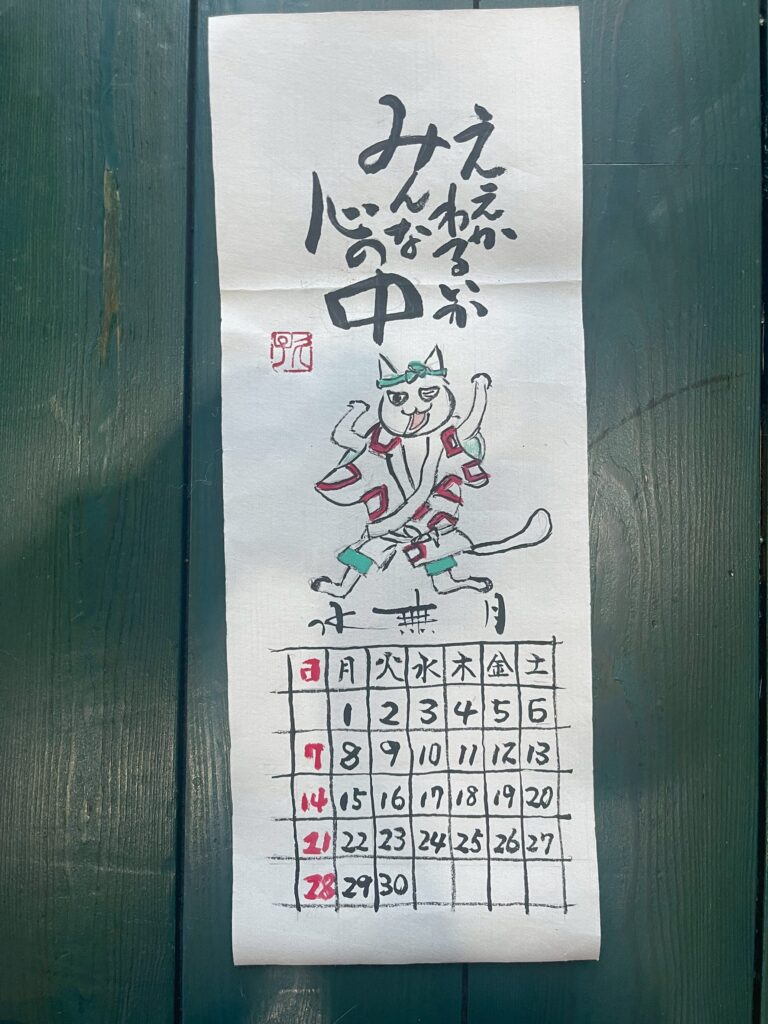 ええか
わるいか
みんな
心の
中
水無月
日 月 火 水 木 金 土
1 2 3 4 5 6
7 8 9 10 11 12 13
14 15 16 17 18 19 20
21 22 23 24 25 26 27
28 29 30